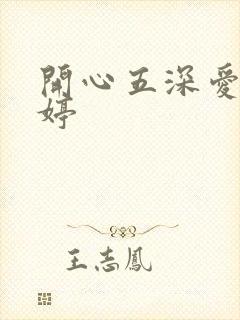 開心五深愛
婷
王志鳳